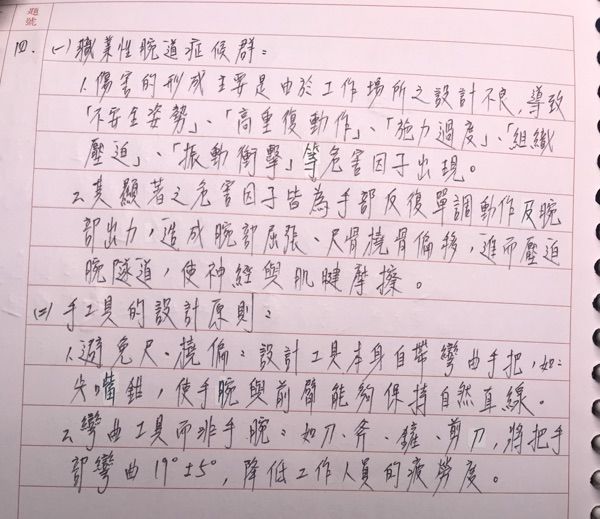 題號
四、(一)職業性腕道症候群：
1.傷害的形成主要是由於工作場所之設計不良，導致
「不安全姿勢」、「高重復動作」、「施力過度」、「組織
壓迫」、「振動衝擊」等危害因子出現。
2.其顯著之危害因子皆為手部反復單調動作及腕
部出力，造成腕部屈張、尺骨橈骨偏移，進而壓迫
腕隧道，使神經與肌腱摩擦。
(二)手工具的設計原則：
1.避免尺、橈偏：設計工具本身自帶彎曲手把，如：
尖嘴鉗，使手腕與前臂能夠保持自然直線。
2.彎曲工具而非手腕：如刀、斧、鏟、剪刀，將把手
部彎曲19°±5°，降低工作人員的疲勞度。